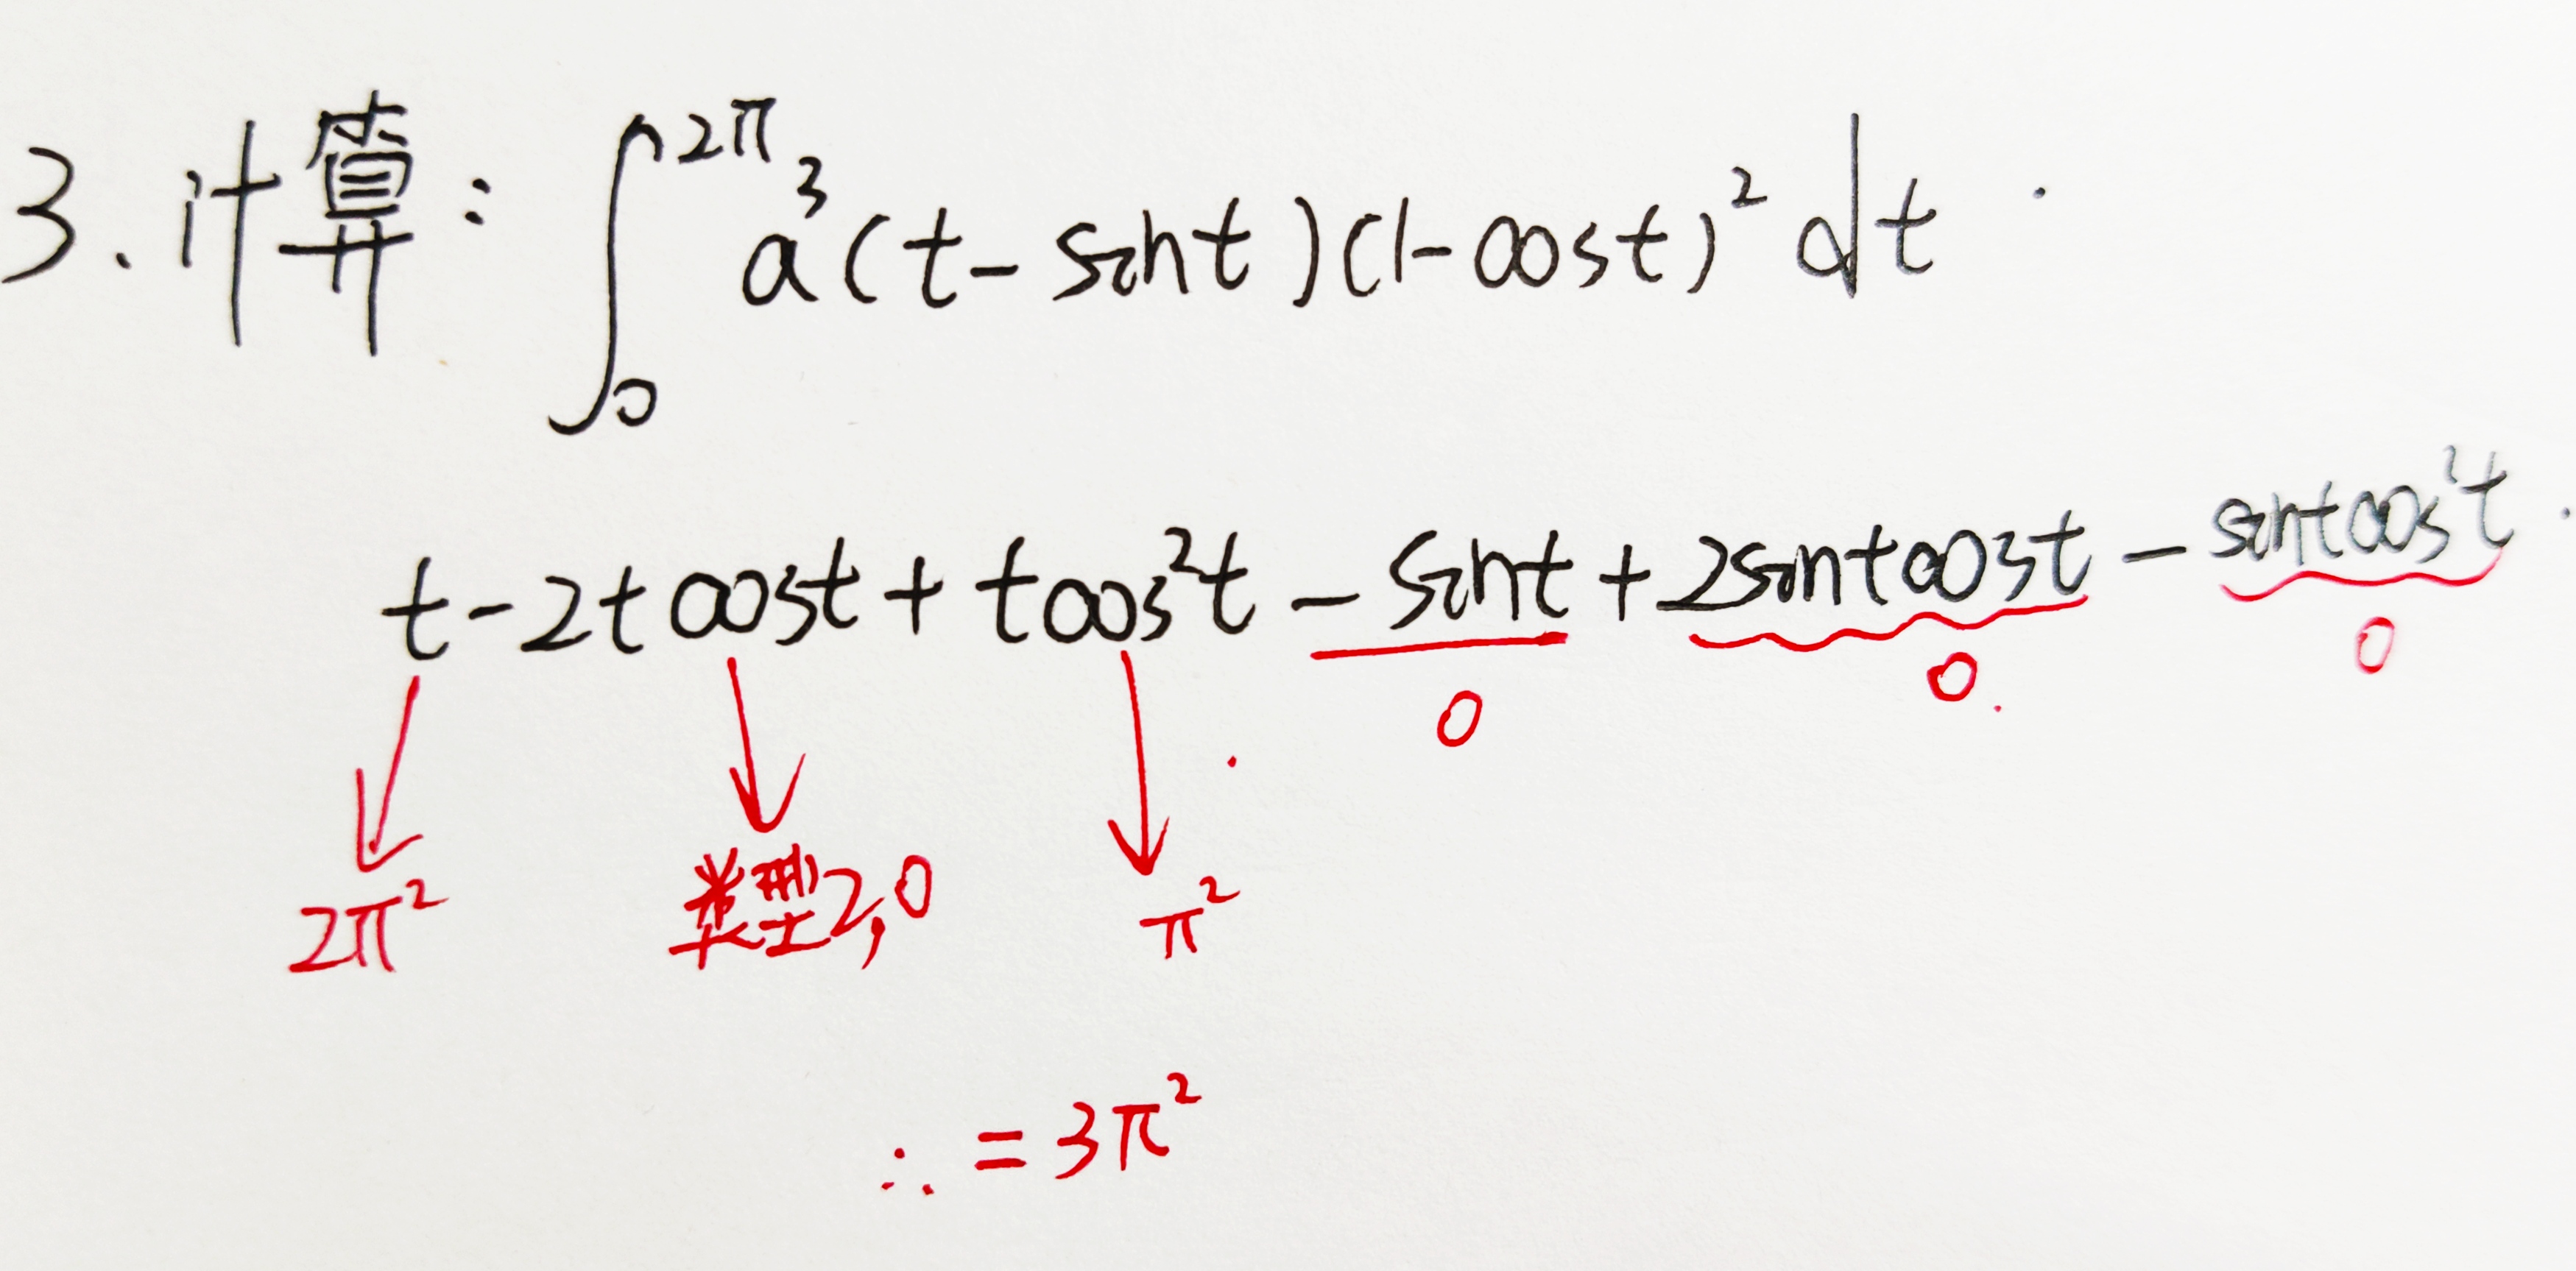 3.计算: ∫₀^2π a³(t-sint)(1-cost)² dt
t-2tcost+tcos²t-sint+2sintcost-sintcos²t.
0 0. 0
2π² 类型2,0 π²
∴ =3π²